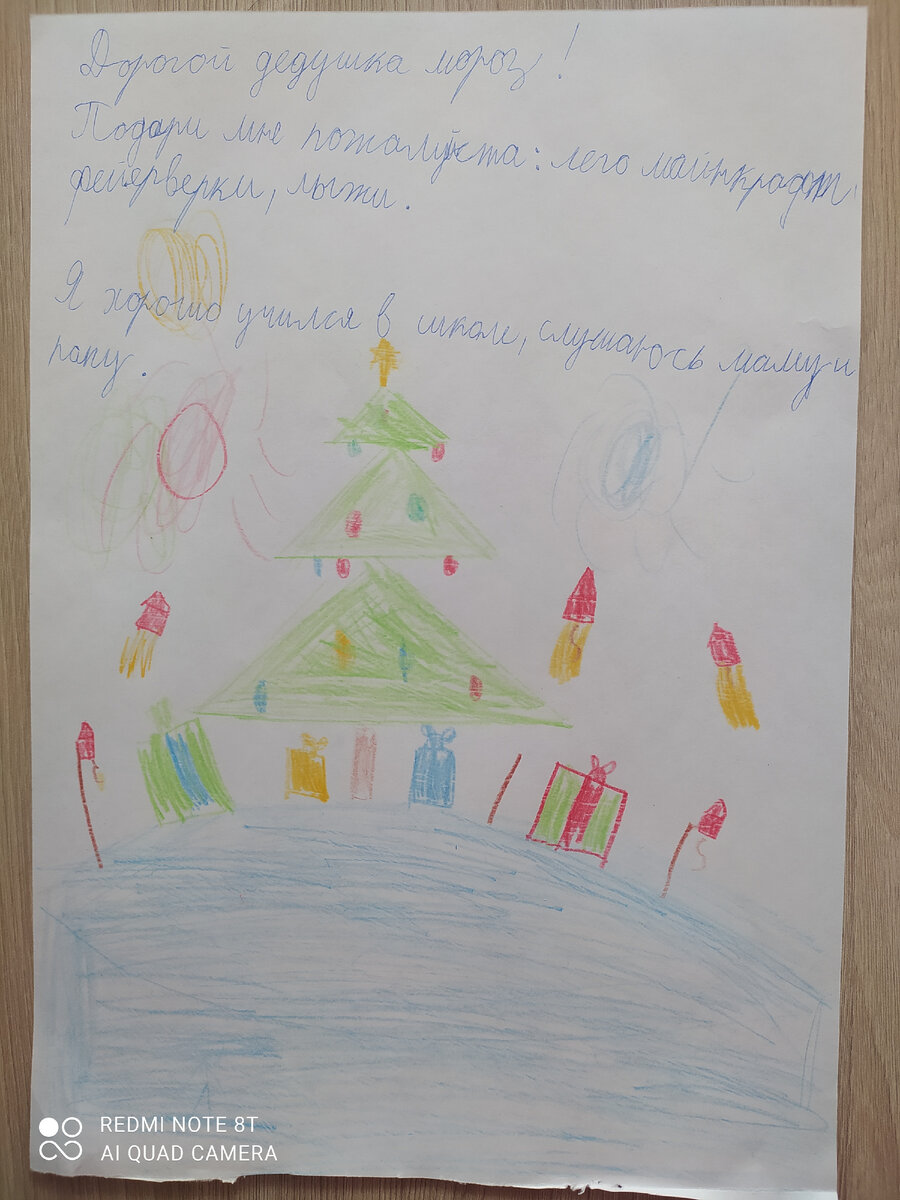 Дорогой дедушка мороз!
Подари мне пожалуйста: лего майнкрафт,
фейерверки, лыжи.
Я хорошо учился в школе, слушаюсь маму и
папу.
REDMI NOTE 8T
AI QUAD CAMERA